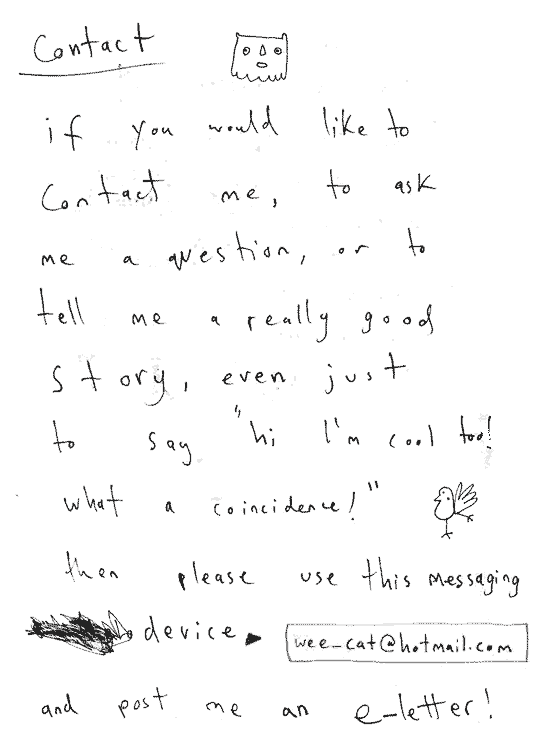 Contact
if you would like to
contact me, to ask
me a question, or to
tell me a really good
story, even just
to say "hi I'm cool too!
what a coincidence!"
then please use this messaging
device ► wee_cat@hotmail.com
and post me an e-letter!